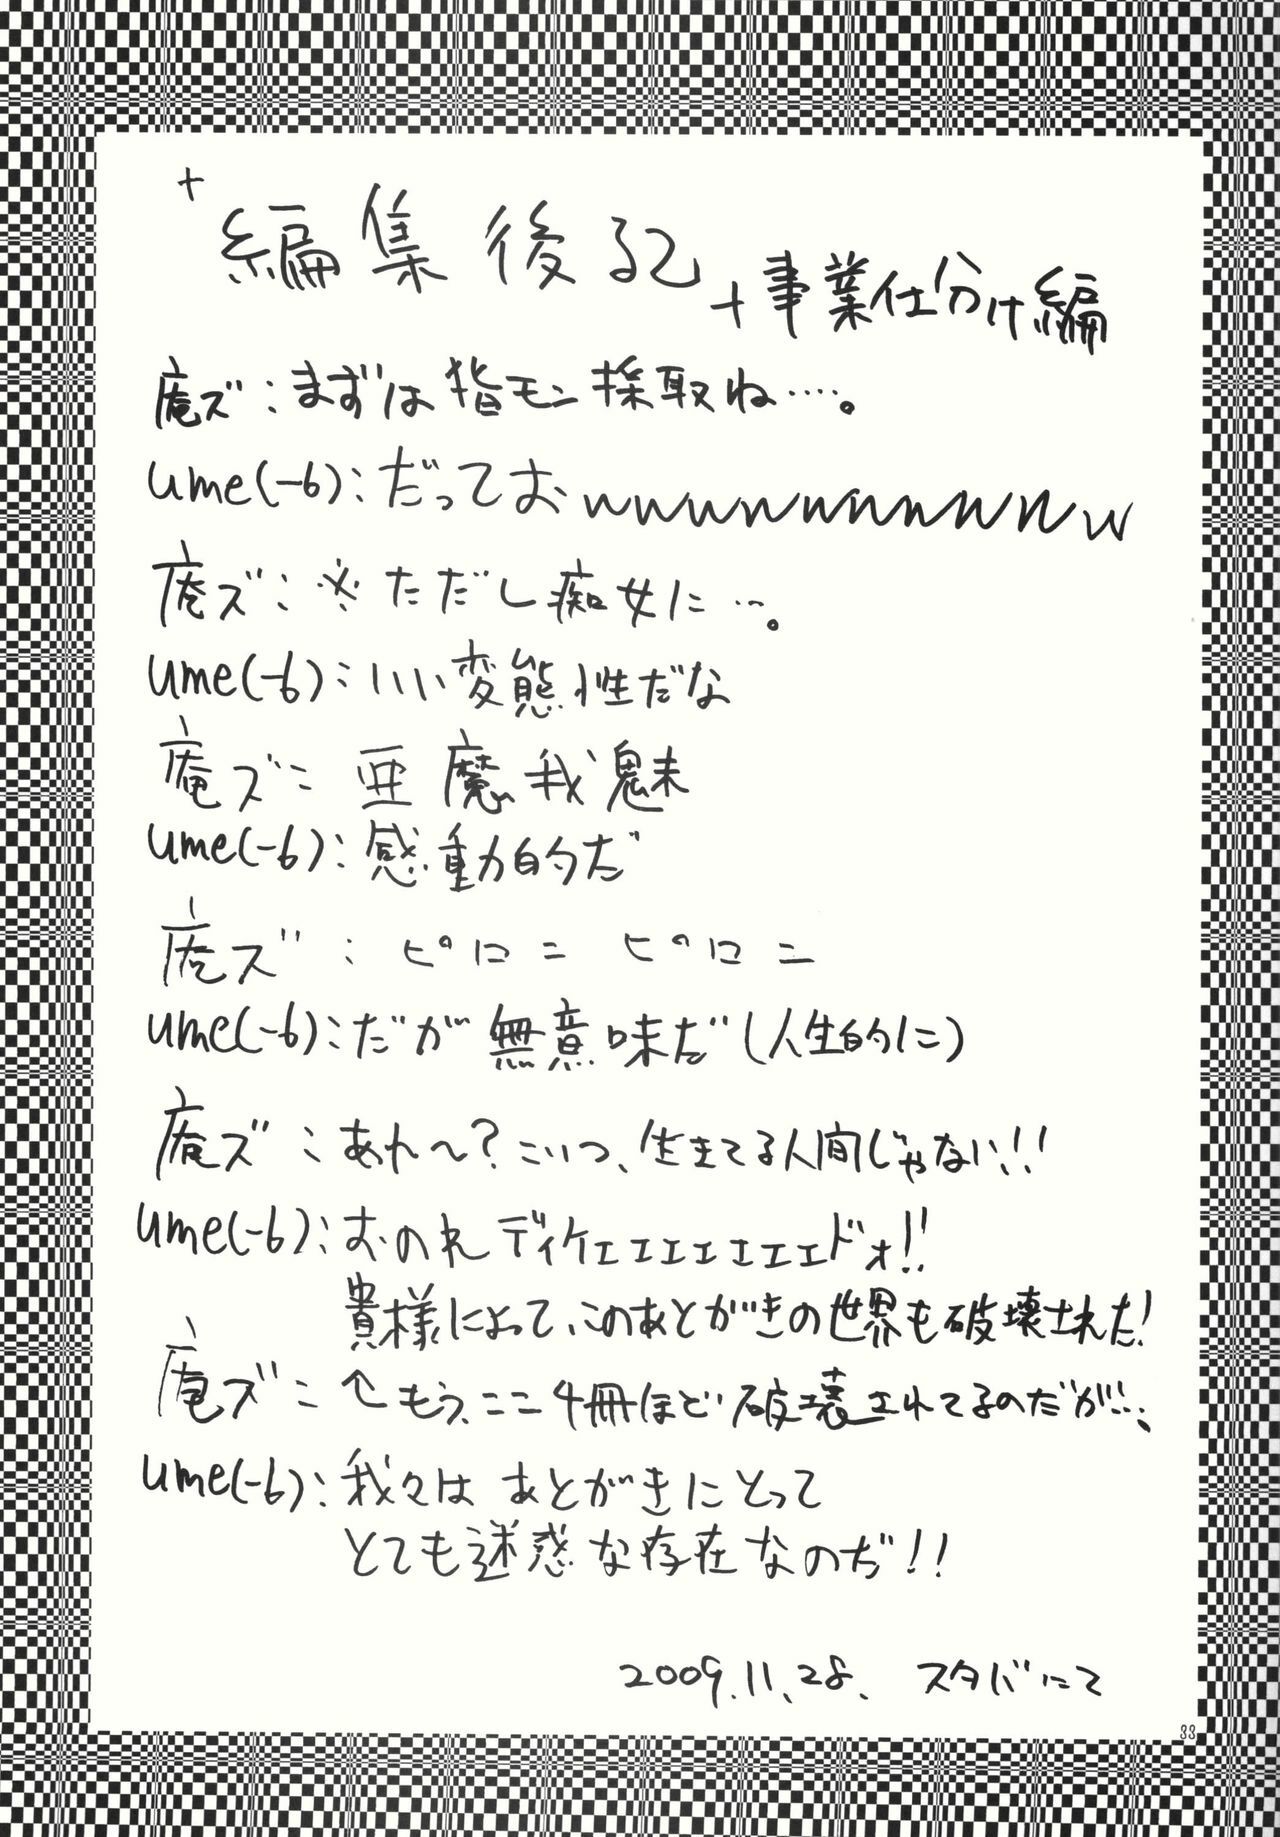 +
編集後記
+事業仕分け編
庵ズ:まずは指モン採取ね….。
ume(-6):だっておwwwwwwwwwww
庵ズ:※ただし痴女に…。
ume(-6):いい変態性だな
庵ズ:亜魔我魅
ume(-6):感動的だ
庵ズ:ピロニ ピロニ
ume(-6):だが無意味だ(人生的に)
庵ズ:あれ〜?こいつ、生きてる人間じゃない!!
ume(-6):おのれディケェェェェェェェドォ!!
貴様によって、このあとがきの世界も破壊された!
庵ズ:↑もう、ここ4冊ほど破壊されてるのだが…。
ume(-6):我々はあとがきにとって
とても迷惑な存在なのぢ!!
2009.11.28. スタバにて
33